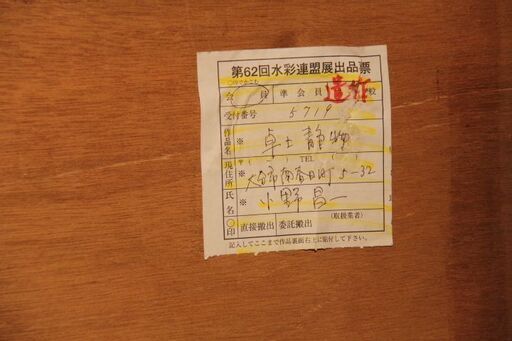 第62回水彩連盟展出品票
○印でかこむ
会員 準会員 遺作
受付番号 5719
作品名 ※ 卓上静物
〒( ) TEL
現住所 ※ 南春日町5-32
氏名 ※ 小野昌一
(取扱業者)
○印 直接搬出 委託搬出
記入してここまで作品裏面右上に貼付して下さい。